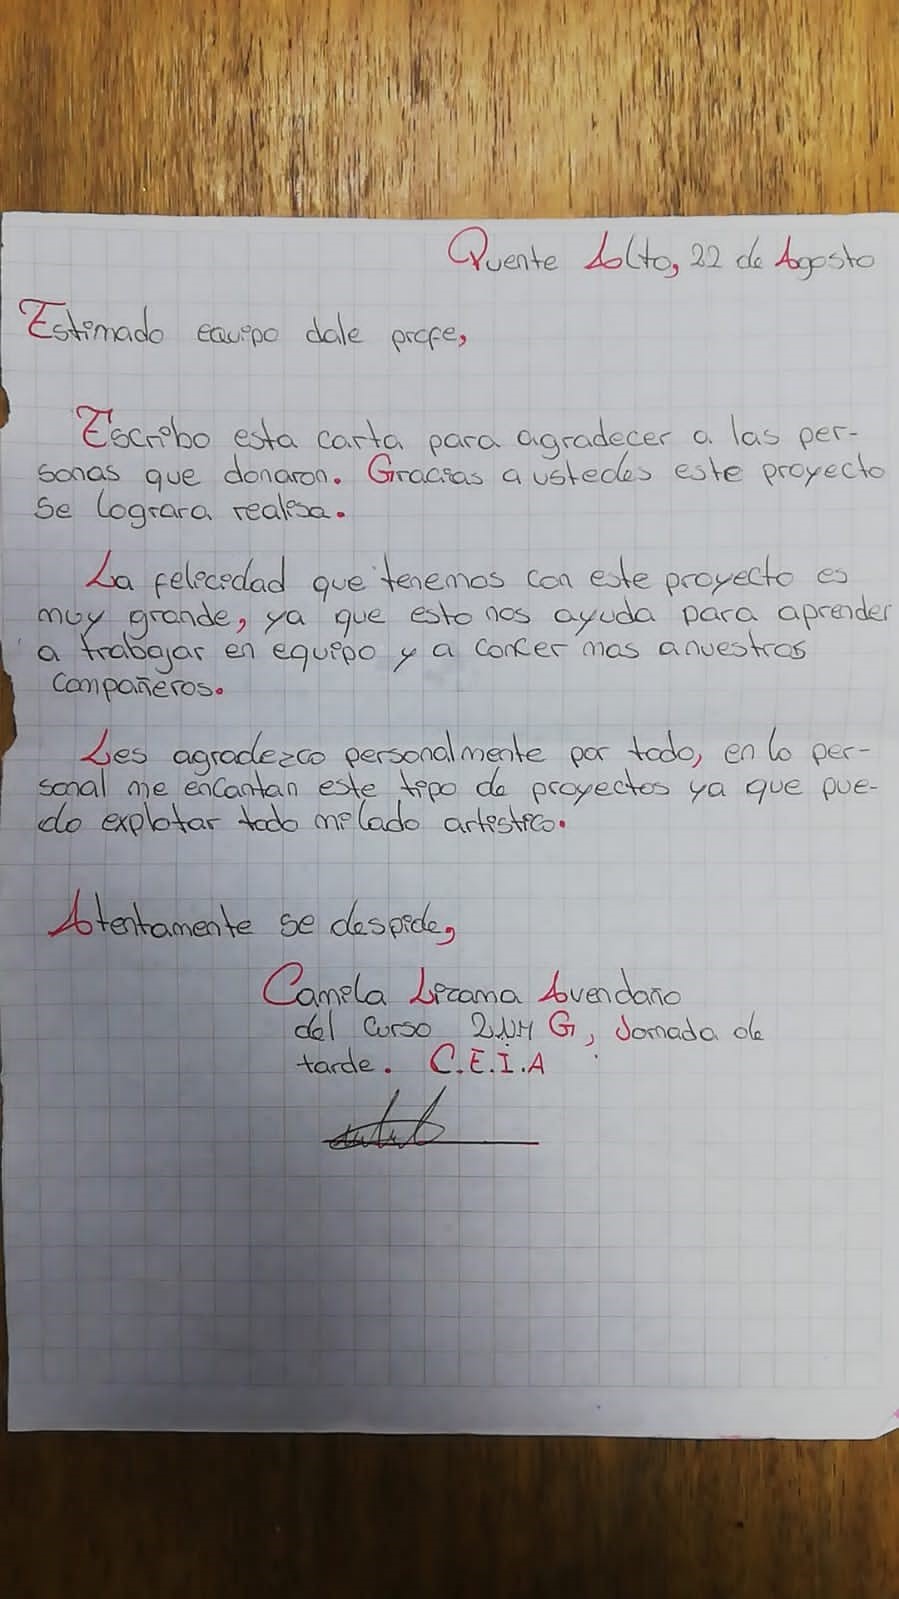 Puente Alto, 22 de Agosto
Estimado equipo dale profe,
Escribo esta carta para agradecer a las per-
sonas que donaron. Gracias a ustedes este proyecto
se lograra realisa.
La felecedad que tenemos con este proyecto es
muy grande, ya que esto nos ayuda para aprender
a trabajar en equipo y a concer mas a nuestros
compañeros.
Les agradezco personalmente por todo, en lo per-
sonal me encantan este tipo de proyectos ya que pue-
do explotar todo mi lado artistico.
Atentamente se despide,
Camila Lizama Avendaño
del Curso 2 G, Jornada de
tarde. C.E.I.A